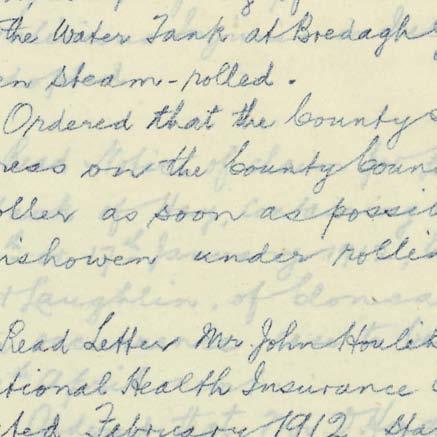 the Water Tank at Bredagh
en steam-rolled.
Ordered that the County
ress on the County Coun
oller as soon as possi
nishowen under rolli
Read Letter Mr John Houlih
tional Health Insurance
ted February 1912 Sta